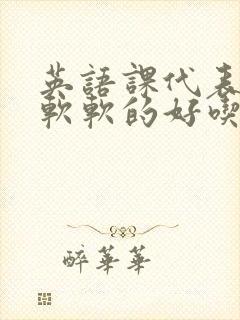 英語課代表
軟軟的好喫
醉華華